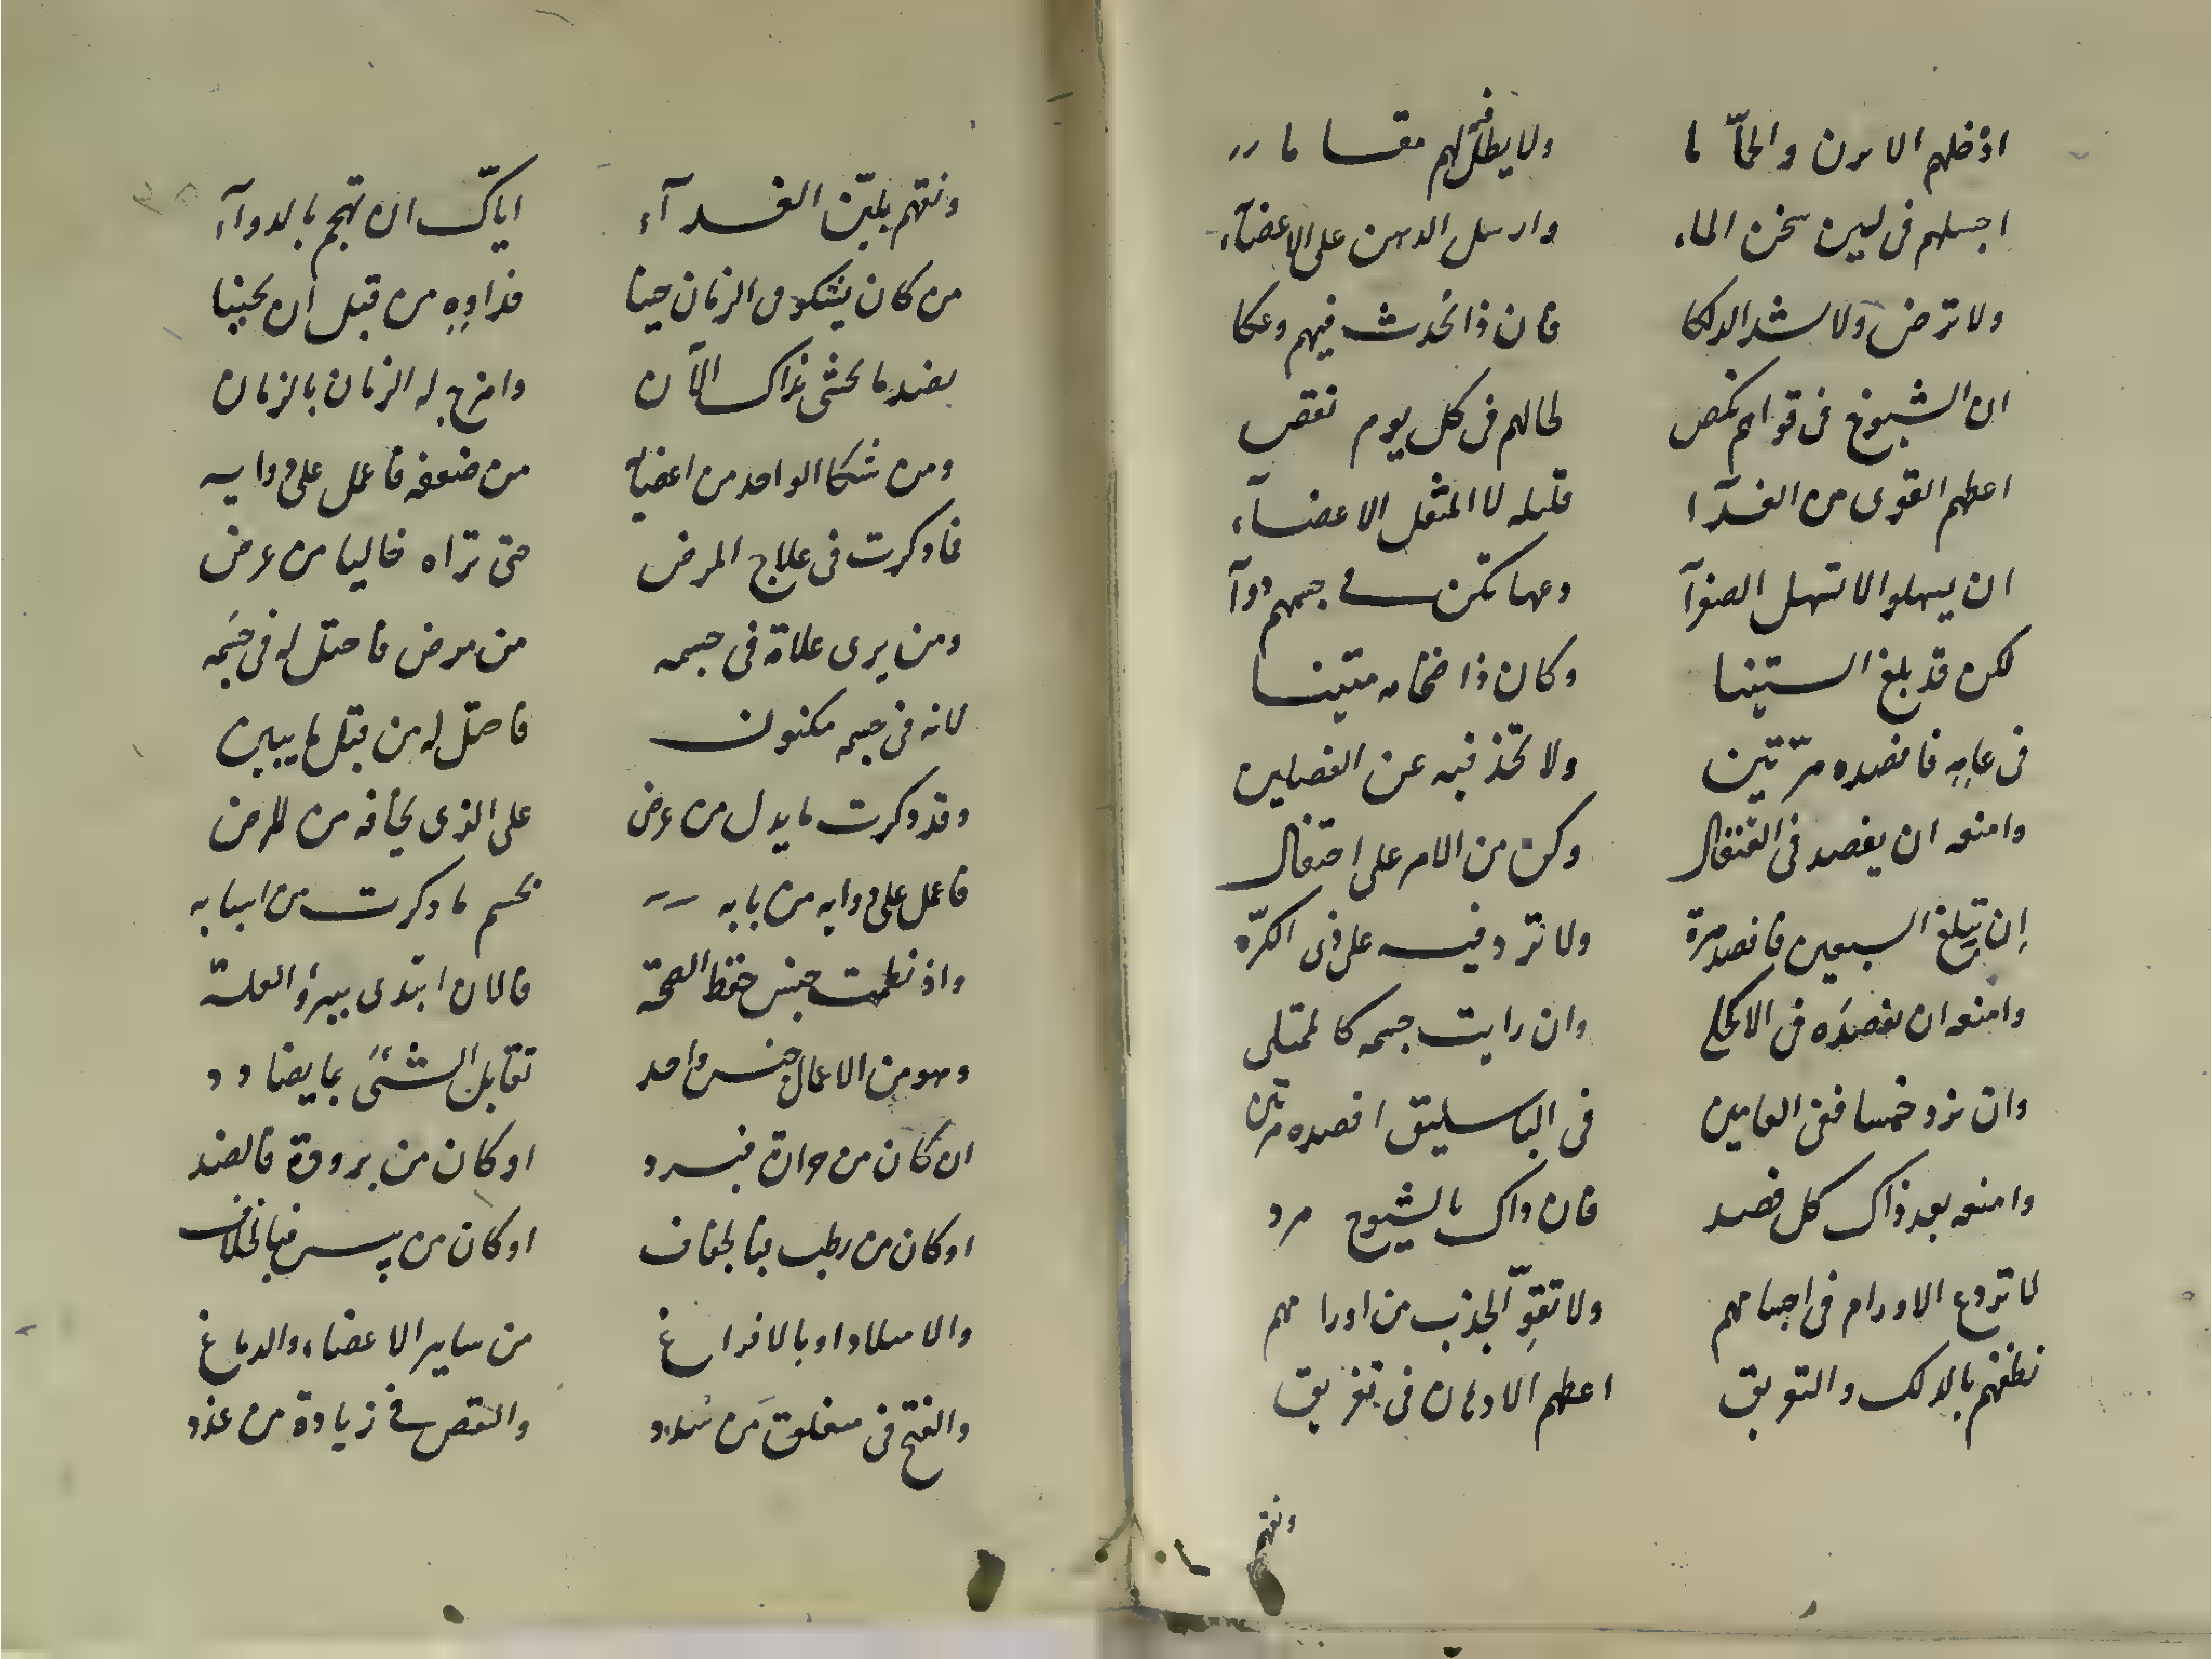 ادخلهم الابزن والحمّاما ولا يطل فيه لهم مقاما
اجسلهم فى لين سخن الماء وارسل الدهن على الاعضآء
ولا ترض ولا شد الدلكا فان ذا تحدث فيهم وعكا
ان الشيوخ فى قواهم نكص لحالهم فى كل يوم نقص
اعطهم القوى من الغذآ قليله لا المثقل الاعضآء
ان يسهلوا لا تسهل الصفرآ ومهما تكن فى جسمهم دوآ
لكن قد بلغ الستينا وكان ذا ضخامه متينا
فى عامه فافصده مرّتين ولا تحد فيه عن الفصلين
وامنعه ان يفصد فى القيفال وكن من الامر على احتفال
إن يبلغ السبعين فافصد مرة ولا تزد فيه على ذى الكرّه
وامنعه ان تفصدَه فى الاكحل وان رايت جسمه كالممتلى
وان تزد خمسا ففى العامين فى الباسليق افصده مرتين
وامنعه بعد ذاك كل فصد فان ذاك بالشيوخ مرد
لا تردع الاورام فى اجسامهم ولا تقوِّ الجذب من اورامهم
نظفهم بالدلك والتعريق اعطهم الادهان فى تغريق
ونقهم
ونقهم بليّن الغذآء اياك ان تهجم بالدوآء
من كان يشكو من الزمان حينا فداوِهِ من قبل ان يحينا
بضد ما يخشى بذاك الآن وامزج له الزمان بالزمان
ومن شكا الواحد من اعضايه من ضعفه فاعمل على دوايه
فما ذكرت فى علاج المرض حتى تراه خاليا من عرض
ومن يرى علامة فى جسمه من مرض فاحتل له فى حسمه
لانه فى جسمه مكنون فاحتل له من قبل ما يبين
وقد ذكرت ما يدل من عرض على الذى يخافه من المرض
فاعمل على دوايه من بابه بحسم ما ذكرت من اسبابه
واذ نظمت جنس حفظ الصحّة فالان ابتدى ببرؤ العلّة
وهو من الاعمال جنس واحد تقابل الشئَ بما يضادد
ان كان من حرارة فبرد او كان من برودة فالضد
او كان من رطب فبالجفاف او كان من يبس فبالخلاف
والامتلا داو بالافراغ من ساير الاعضاء والدماغ
والفتح فى منغلق من سدد والنقص فى زيادة من عدد